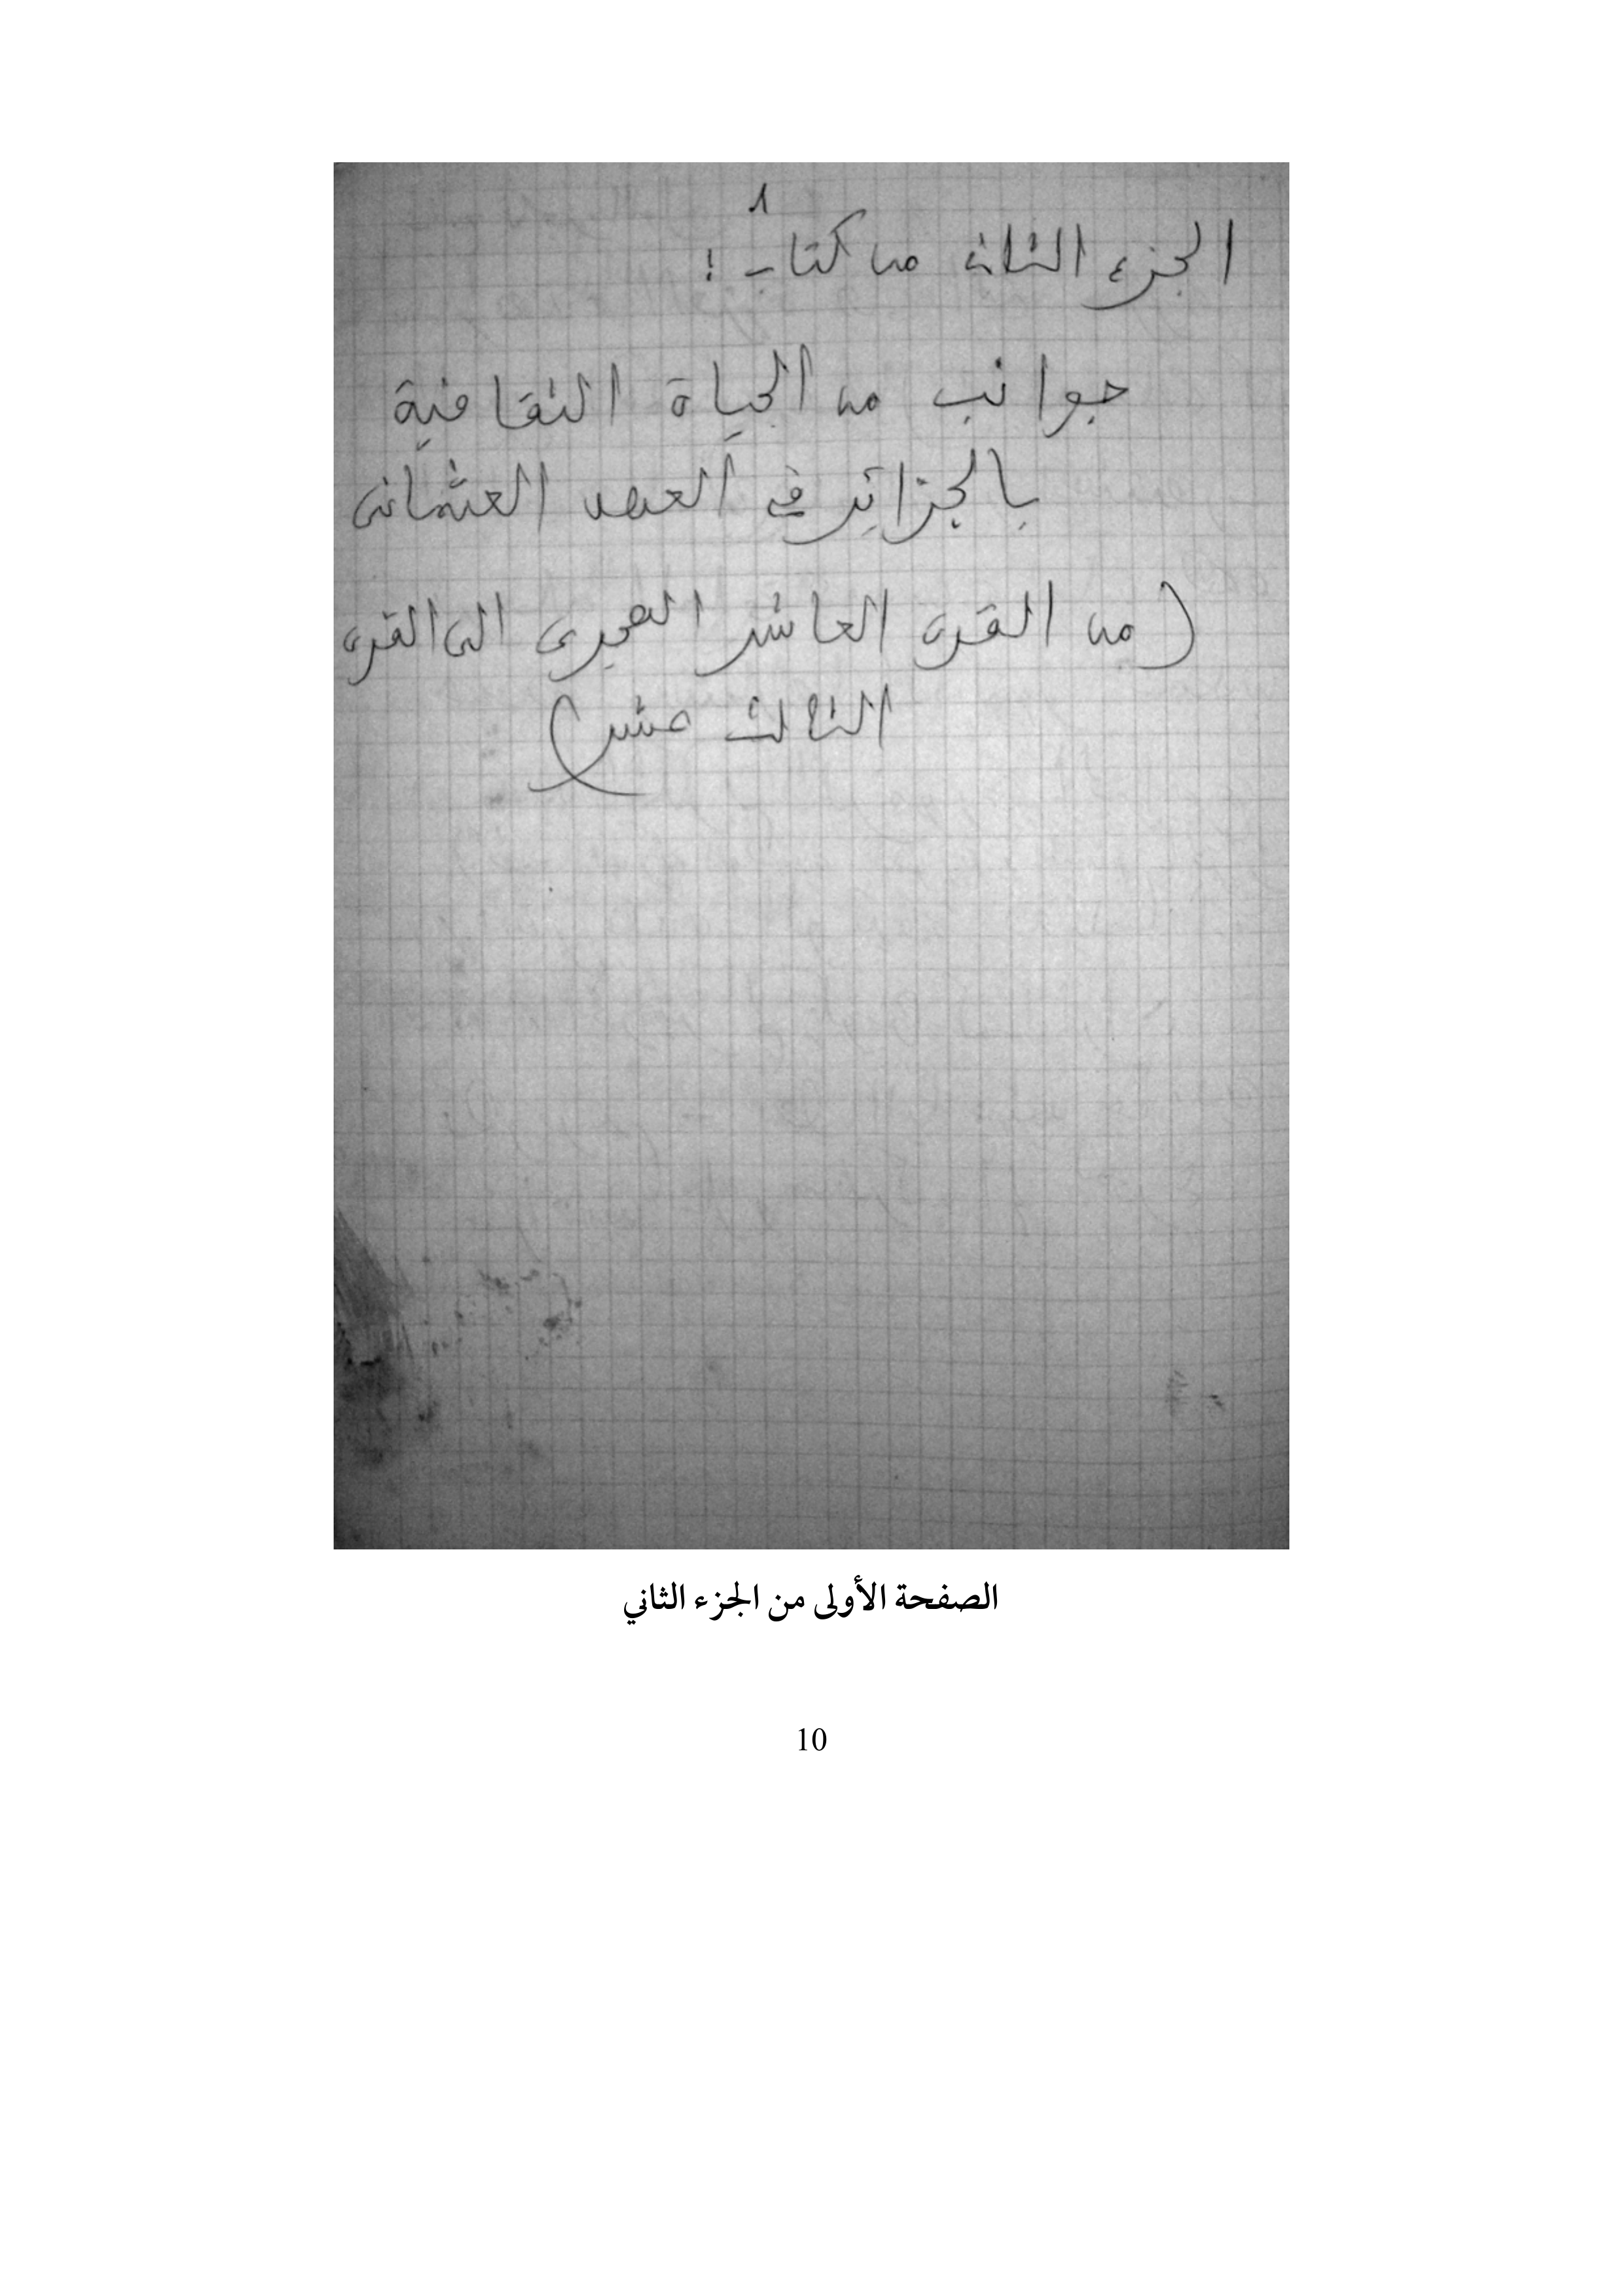 1
الجزء الثاني من كتاب :
جوانب من الحياة الثقافية
بالجزائر في العهد العثماني
(من القرن العاشر الهجري الى القرن
الثالث عشر)
الصفحة الأولى من الجزء الثاني
10